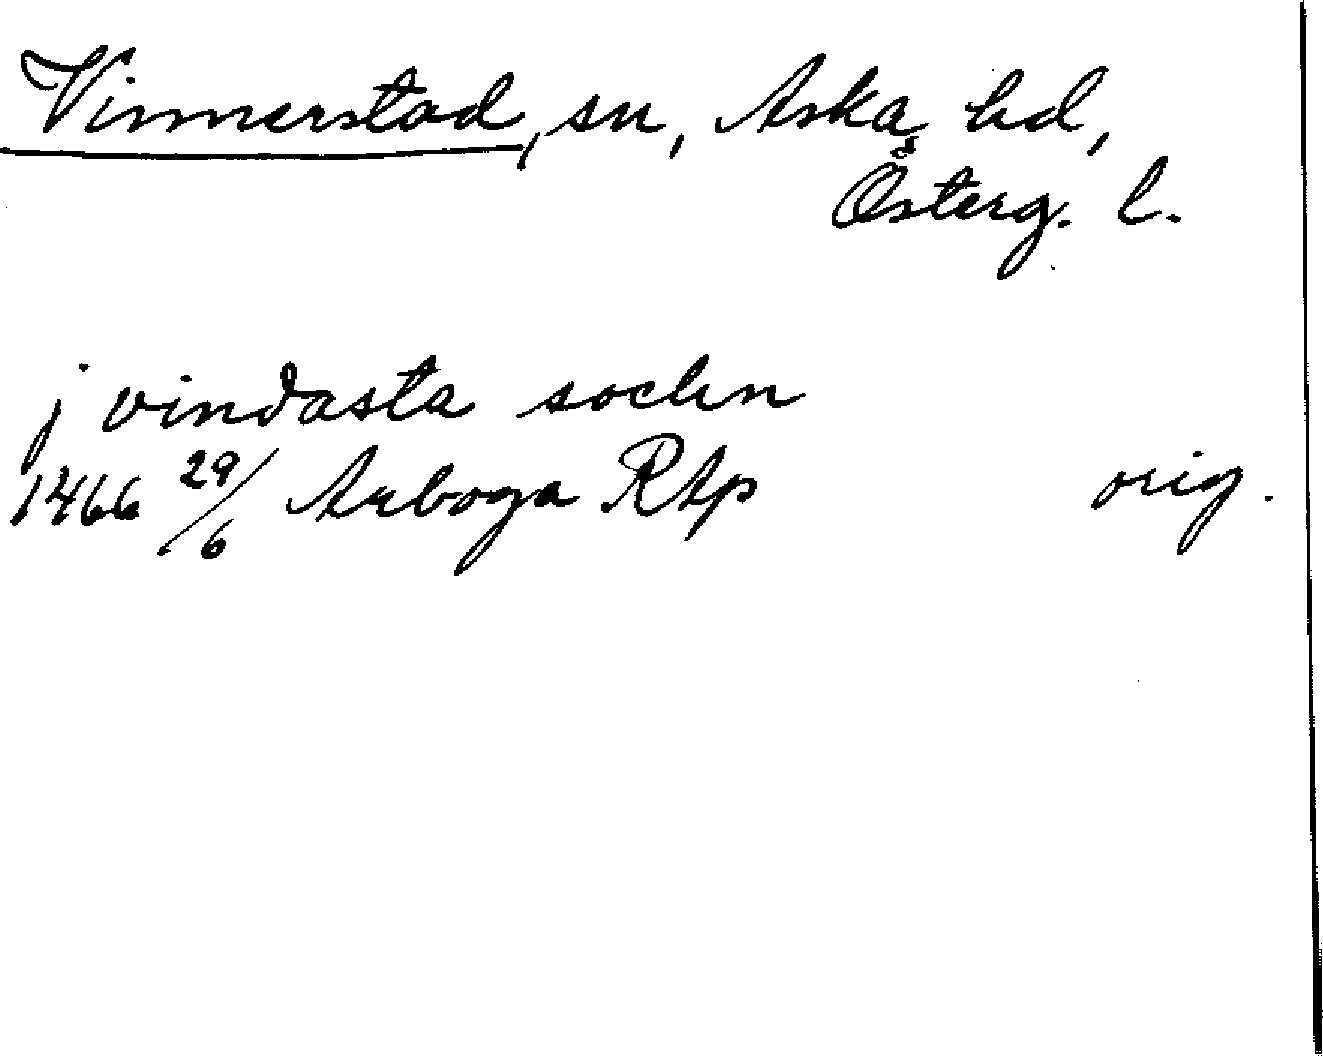 Vinnerstad, sn, Aska hd,
Österg. l.
j vindasta sochn
1466 29/6 Arboga RAp orig.